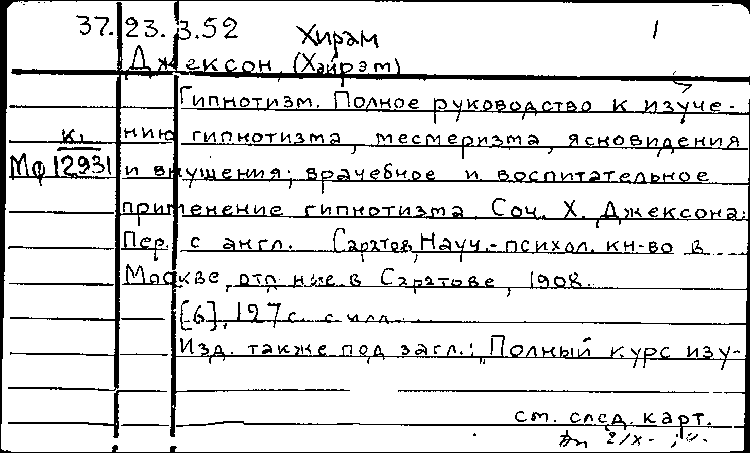 37.23.3.52 1
Хирам
Джексон, (Хайрэм)
Гипнотизм. Полное руководство к изуче-
К1 нию гипнотизма, месмеризма, ясновидения
Мф 12931 и внушения; врачебное и воспитательное
применение гипнотизма. Соч. Х. Джексона.
Пер. с англ. Саратов, Науч.-психол. кн-во в
Москве, отд-ние в Саратове, 1908.
[6], 127 с. с илл.
Изд. также под загл.: „Полный курс изу-
см. след. карт.